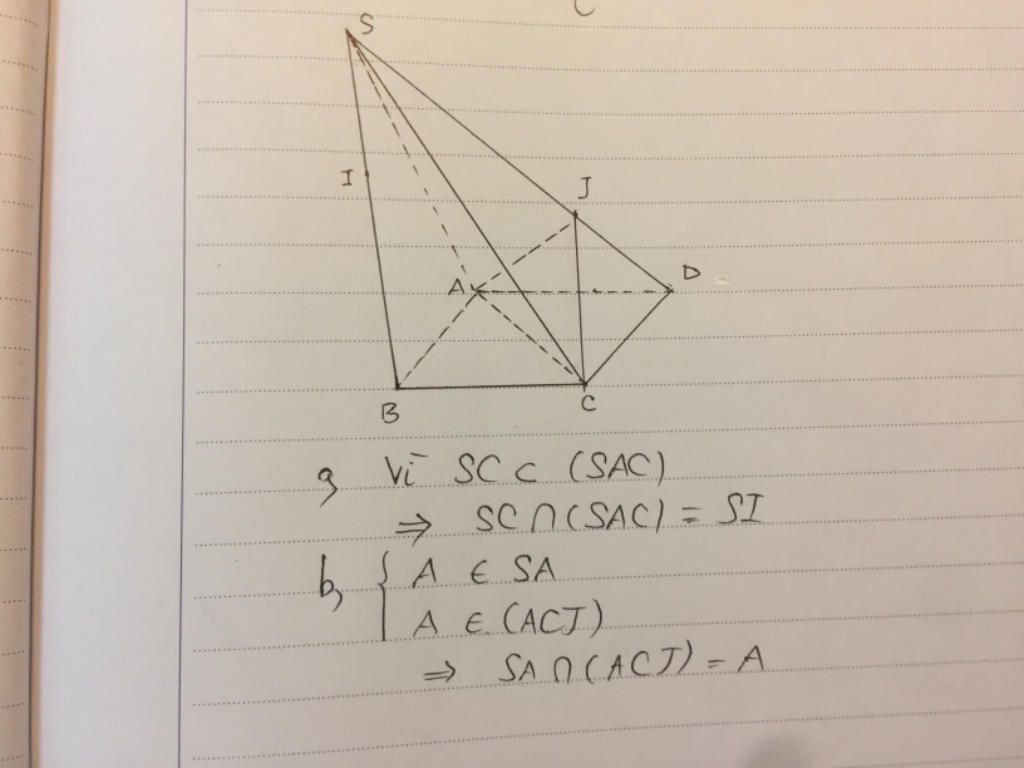 S
I
J
A
D
B
C
a, Vì SC ⊂ (SAC)
⇒ SC ∩ (SAC) = SI
b, { A ∈ SA
A ∈ (ACJ)
⇒ SA ∩ (ACJ) = A